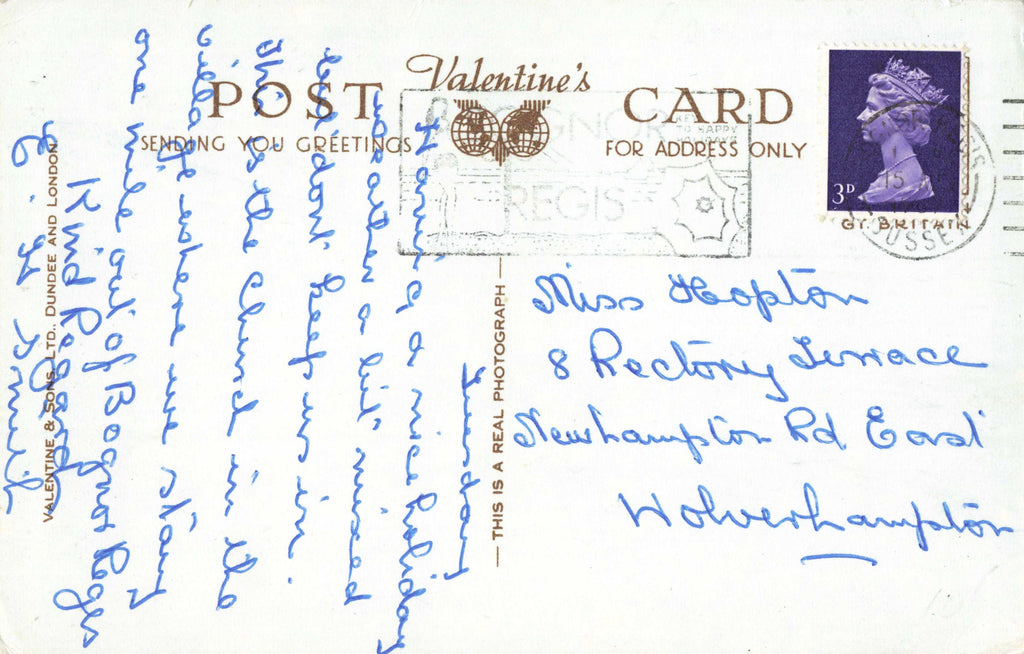 Valentine's
POST CARD
SENDING YOU GREETINGS
FOR ADDRESS ONLY
BOGNOR
KEY
TO HAPPY
REGIS
3D
GT. BRITAIN
15
SUSSEX
Tuesday
Having a nice holiday
weather a bit mixed
but don't keep us in.
This is the church in the
village where we stay
one mile out of Bognor Regis
Kind Regards
E. Smith
VALENTINE & SONS, LTD., DUNDEE AND LONDON
— THIS IS A REAL PHOTOGRAPH —
Miss Hopton
8 Rectory Terrace
Newhampton Rd East
Wolverhampton